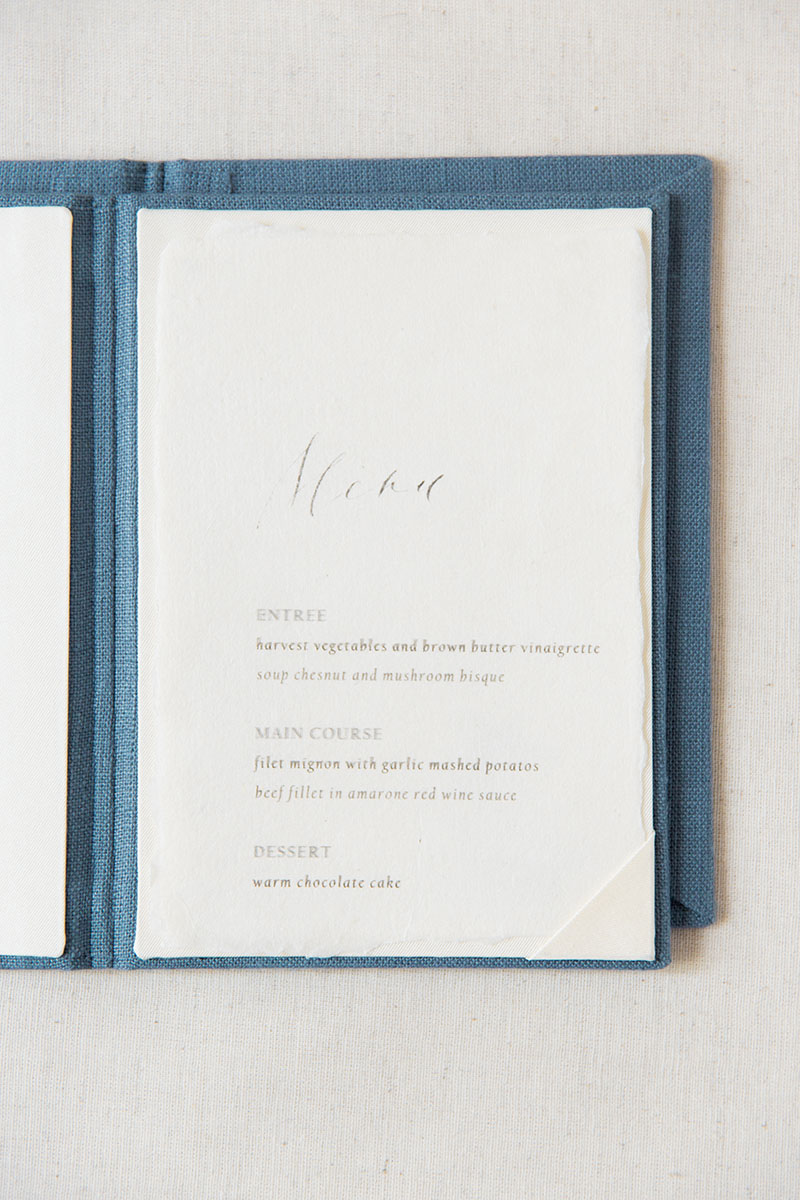 Menu
ENTREE
harvest vegetables and brown butter vinaigrette
soup chesnut and mushroom bisque
MAIN COURSE
filet mignon with garlic mashed potatos
beef fillet in amarone red wine sauce
DESSERT
warm chocolate cake